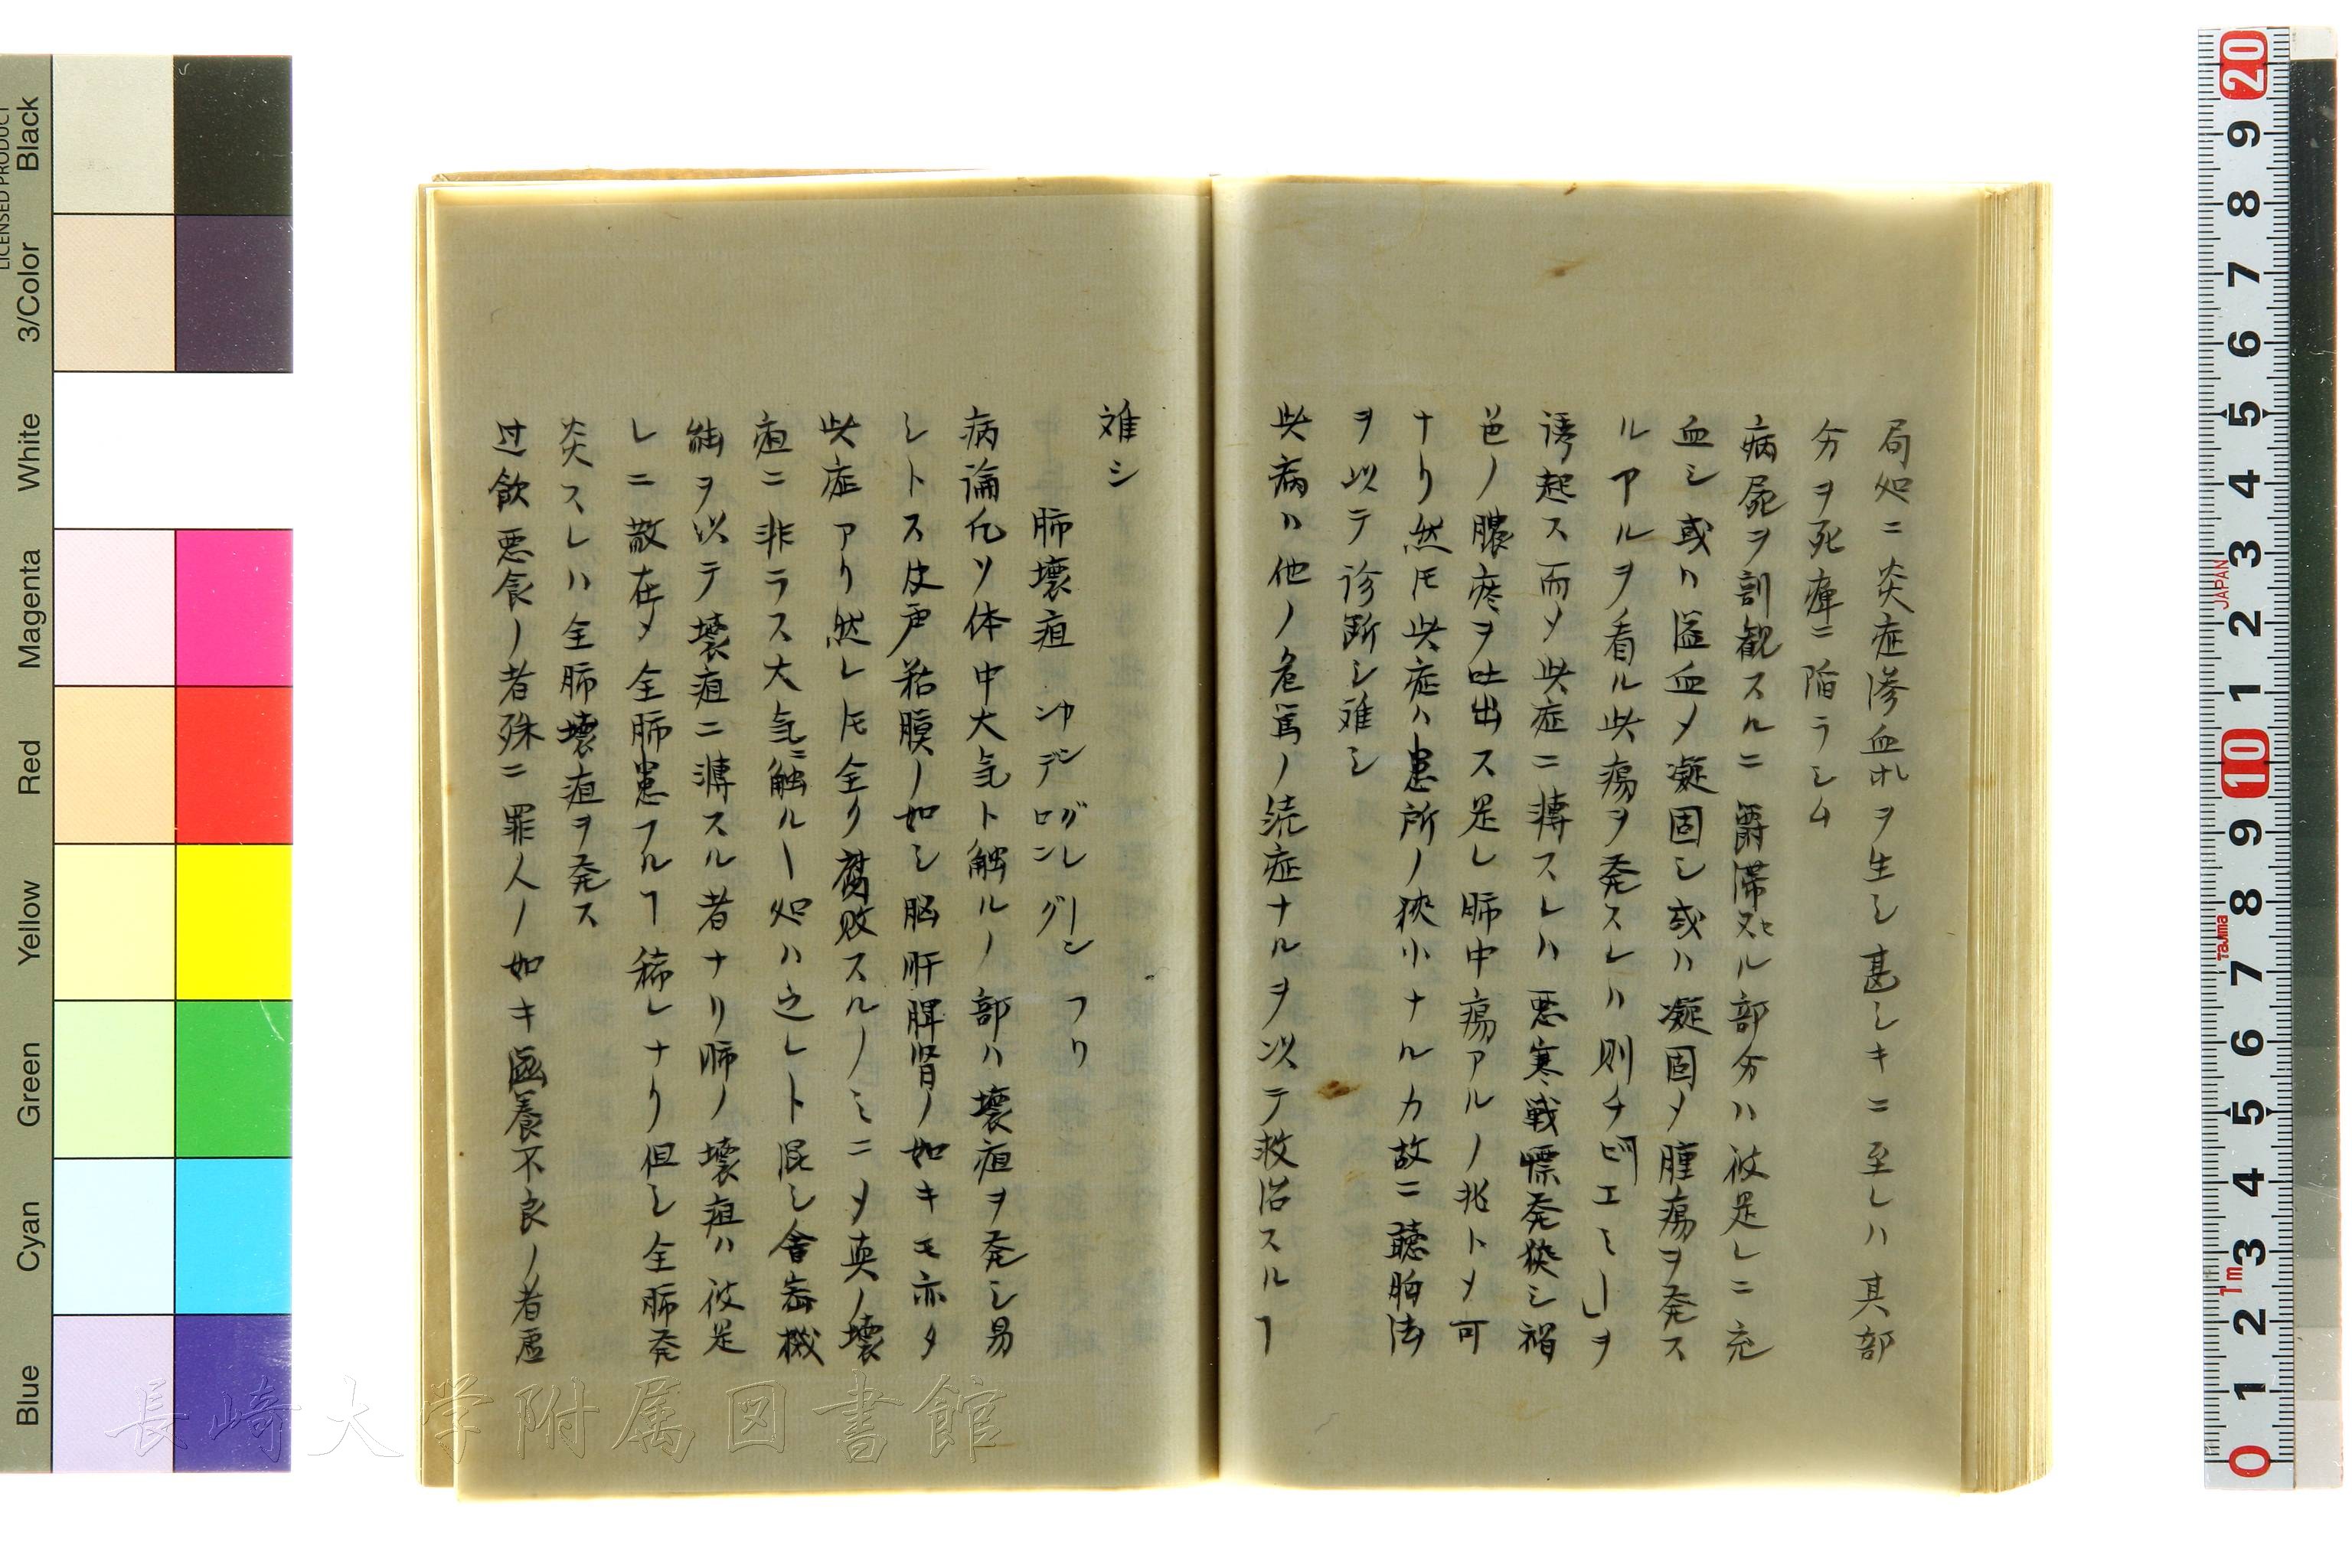 局処ニ炎症滲血ホヲ生シ甚シキニ至レハ其部
分ヲ死痺ニ陥ラシム
病屍ヲ割観スルニ欝滞又ヒル部分ハ彼是レニ充
血シ或ハ溢血メ凝固シ或ハ凝固メ腫瘍ヲ発ス
ルアルヲ看ル此瘍ヲ発スレハ則チ「ピエミー」ヲ
誘起ス而メ此症ニ漙スレハ悪寒戦慄発狭シ褐
色ノ膿疼ヲ吐出ス是レ肺中瘍アルノ兆トメ可
ナリ然モ此症ハ患所ノ狭小ナルカ故ニ聴胸法
ヲ以テ診断シ难シ
此病ハ他ノ危篤ノ続症ナルヲ以テ救治スルヿ
难シ
肺壊疽 ガングレーン フリ
ヤンデロング
病論凢ソ体中大気ト触ルノ部ハ壊疽ヲ発シ易
シトス皮声粘膜ノ如シ脳肝脾腎ノ如キモ亦タ
此症アリ然レモ全ク腐敗スルノミニメ真ノ壊
疽ニ非ラス大気ニ触ルー処ハ之レト混シ會𫝶機
細ヲ以テ壊疽ニ漙スル者ナリ肺ノ壊疽ハ彼是
レニ散在メ全肺患フルヿ稀レナリ但シ全肺発
炎スレハ全肺壊疽ヲ発ス
过飲悪食ノ者殊ニ罪人ノ如キ滋養不良ノ者虚
長崎大学附属図書館
LICENSED PRODUCT
Black
3/Color
White
Magenta
Red
Yellow
Green
Cyan
Blue
20
9
8
7
6
5
4
3
JAPAN
2
1
10
9
8
Tajima
7
6
5
4
3
1m
2
1
0